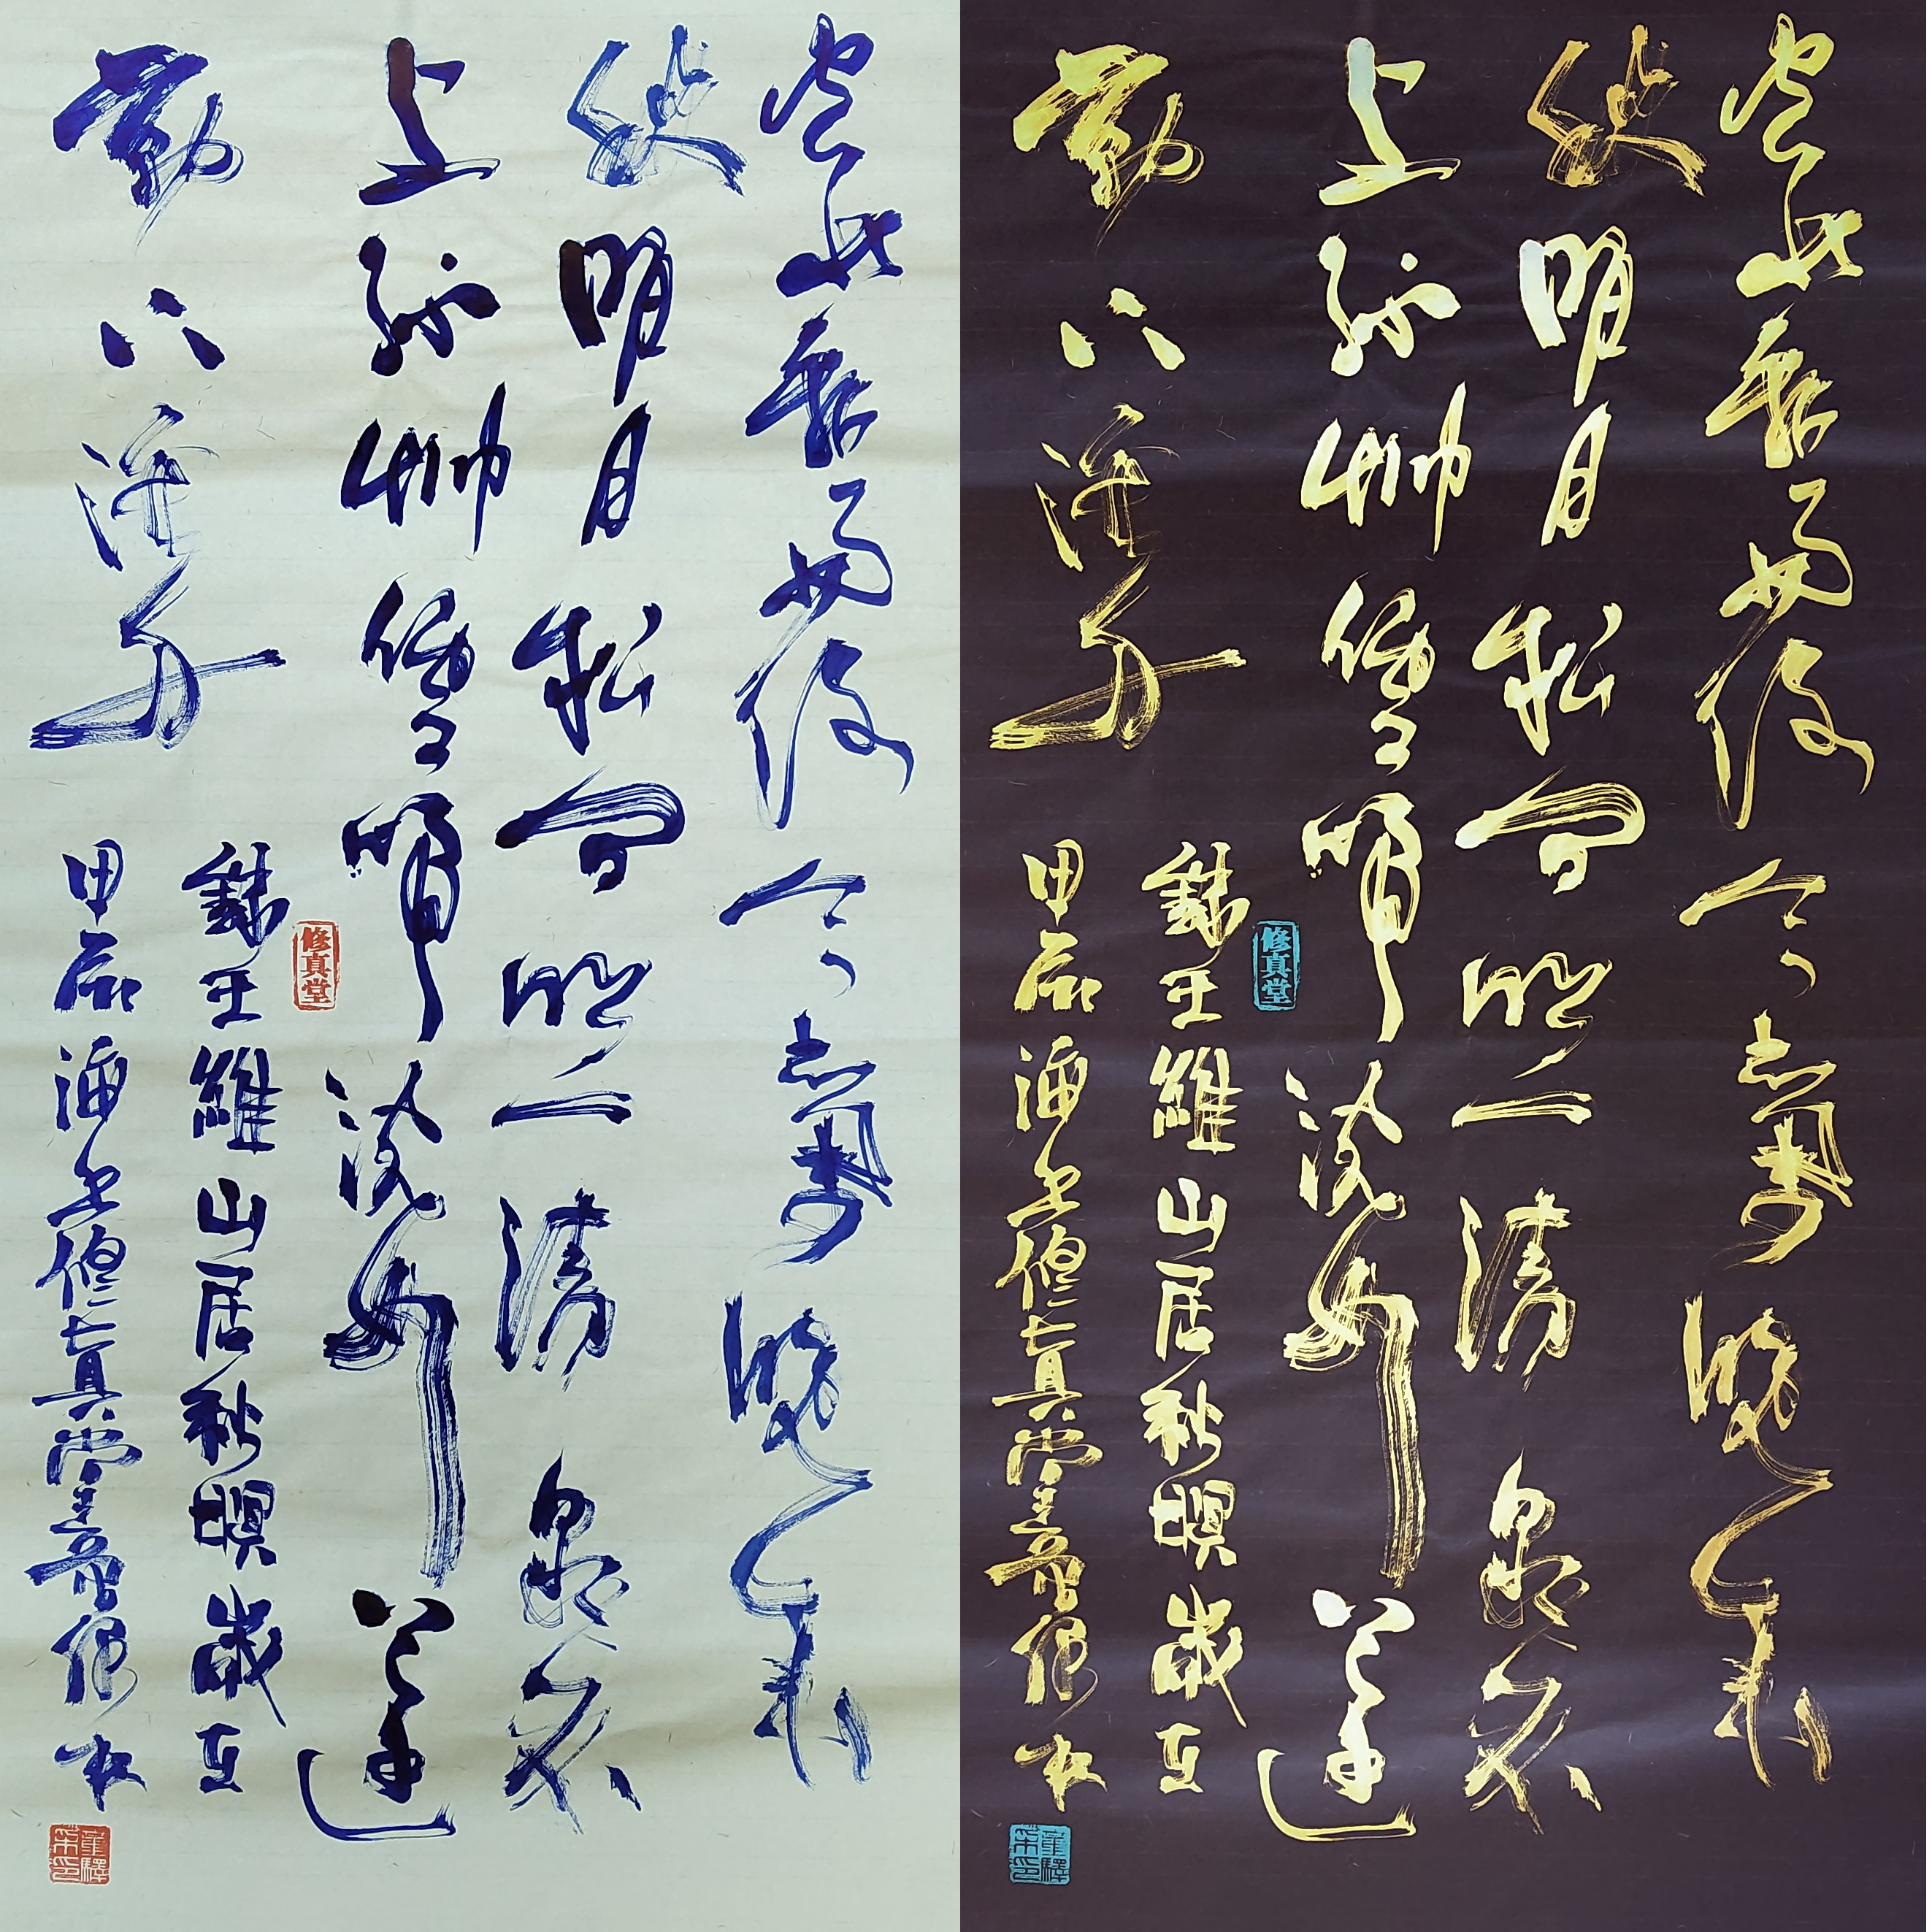 空山新雨後天氣晚來
秋明月松間照清泉石
上流竹喧歸浣女蓮
動下漁舟
錄王維山居秋暝歲在
甲辰海上修真堂
修真堂
空山新雨後天氣晚來
秋明月松間照清泉石
上流竹喧歸浣女蓮
動下漁舟
錄王維山居秋暝歲在
甲辰海上修真堂
修真堂